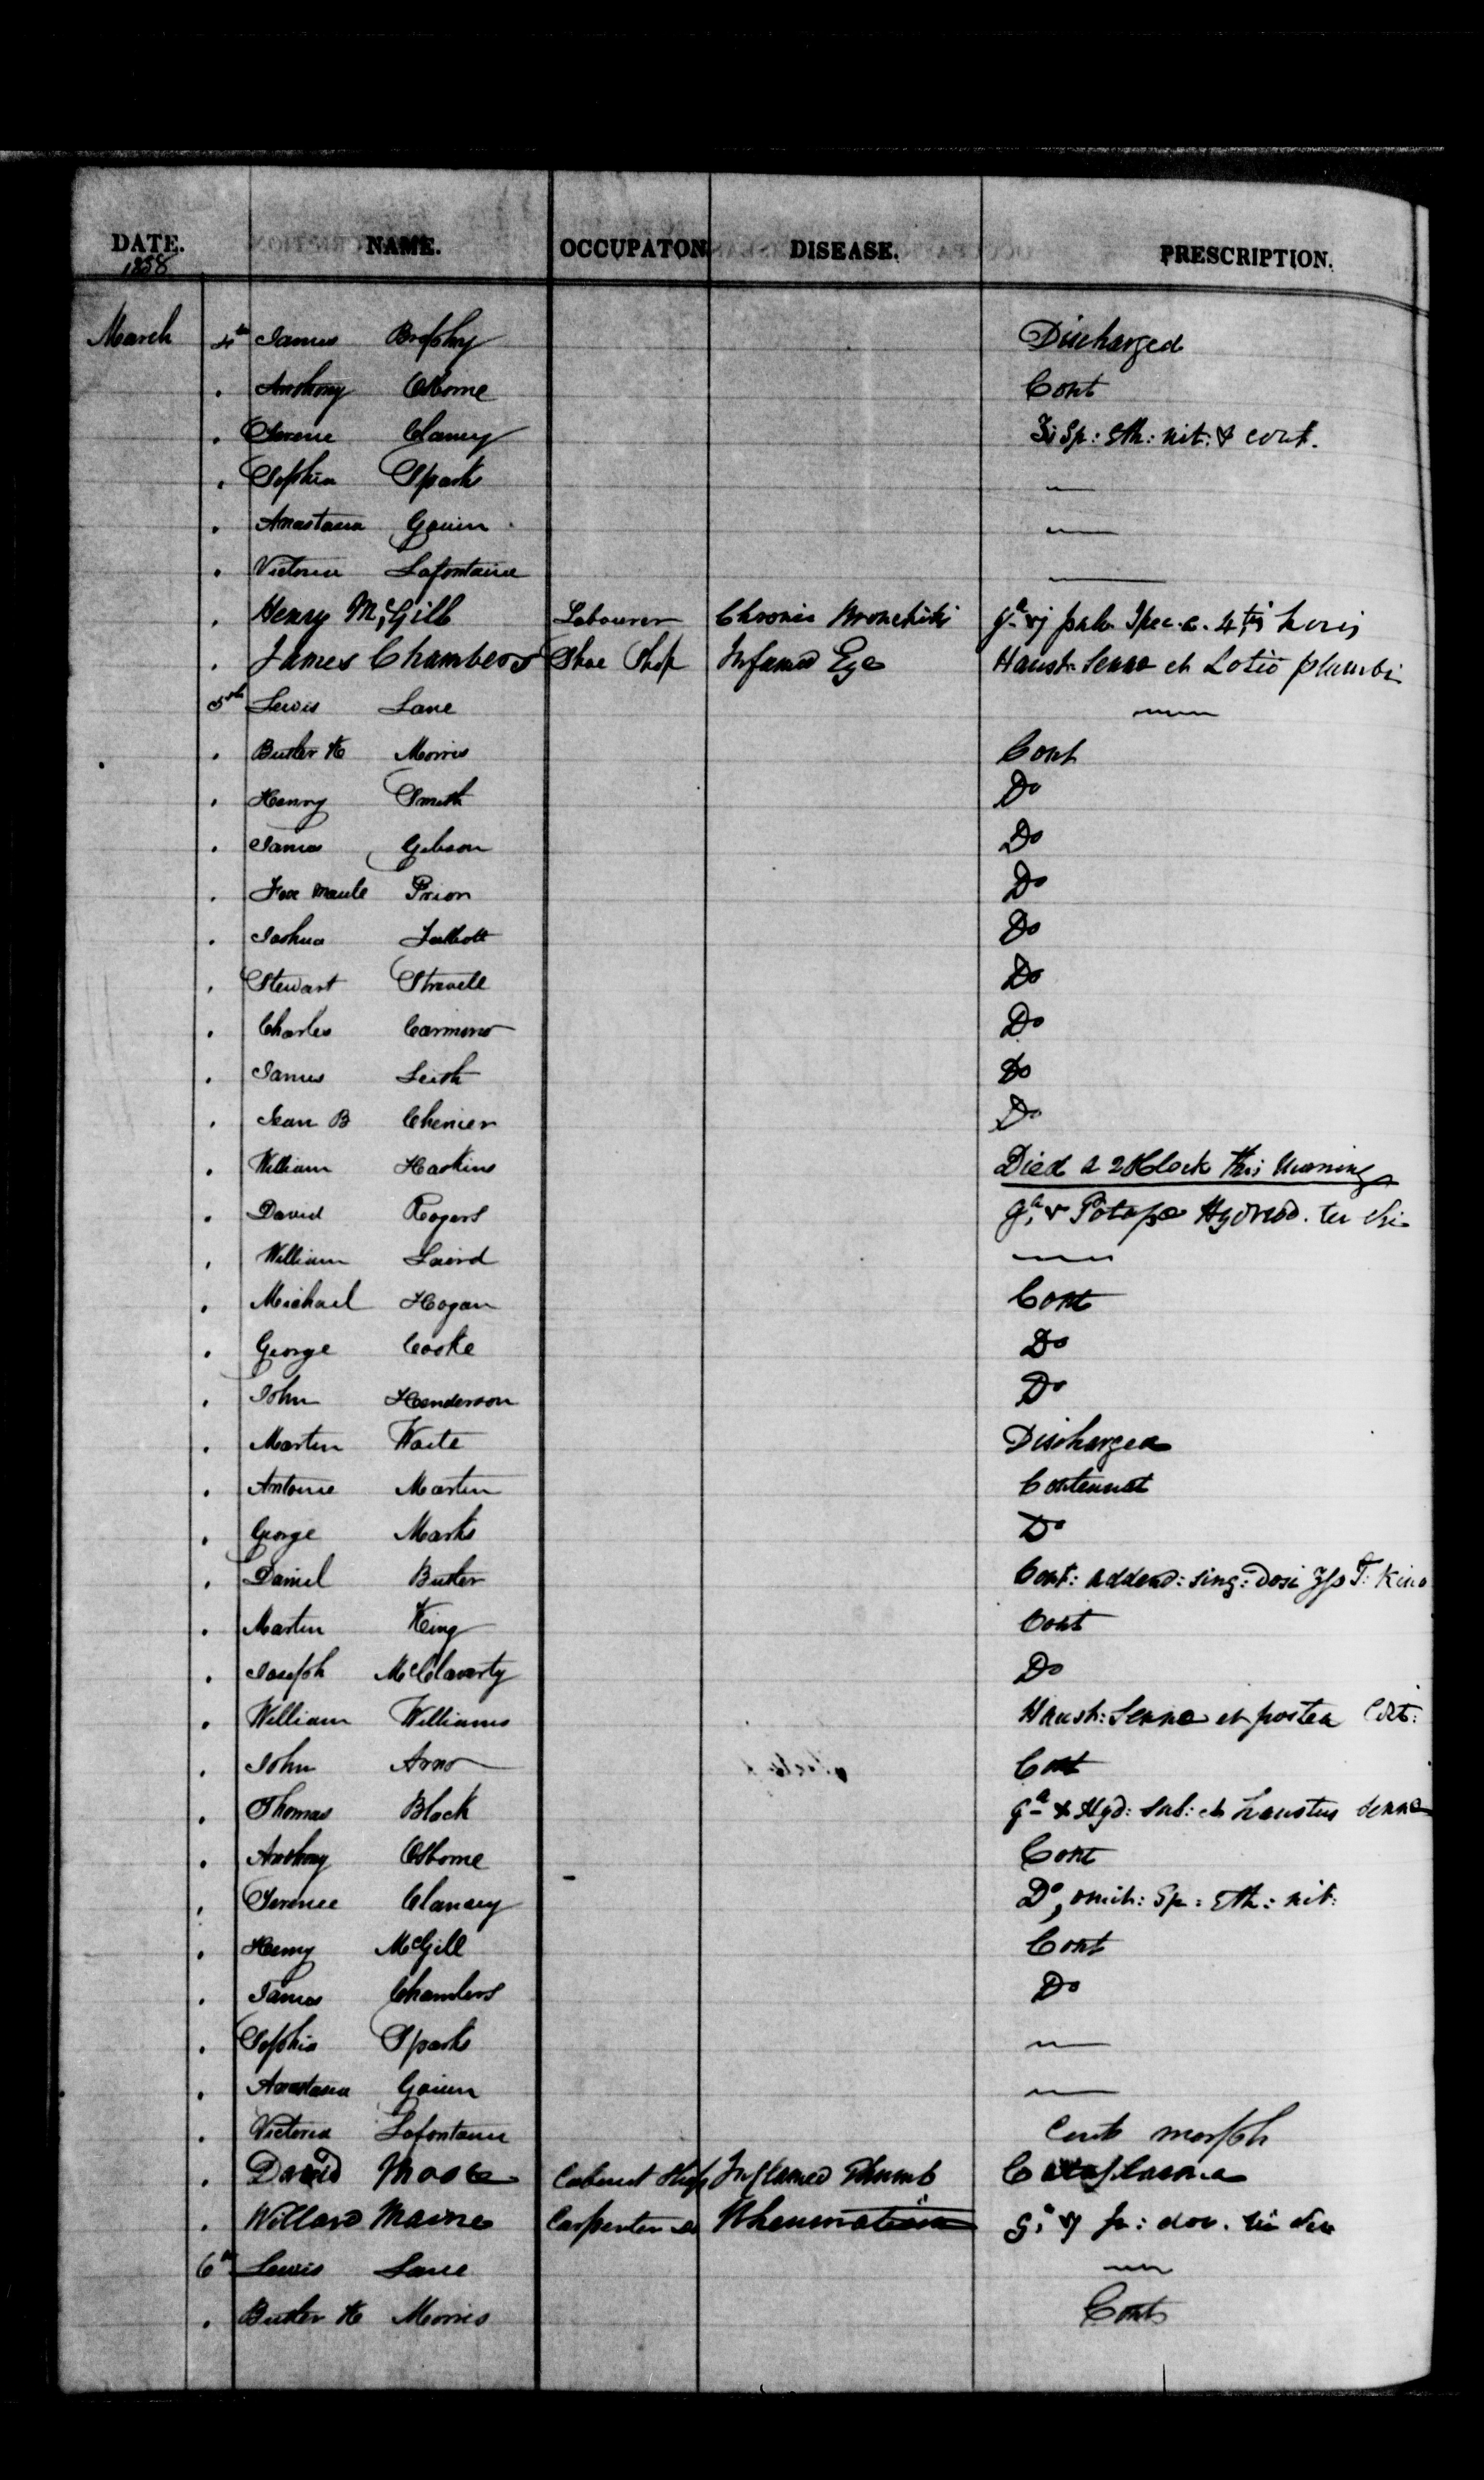 DATE. NAME. OCCUPATON DISEASE. PRESCRIPTION.
1858
March 4th James Brophy Discharged
. Anthony Osborne Cont
. Terence Clancy ʒi Sp: Eth: nit: & cont.
. Sophia Sparks —
. Anastasia Gouin —
. Victoria Lafontaine —
. Henry McGill Labourer Chronic Bronchitis gr vj pulv Ipec. c. 4tis horis
. James Chambers Shoe Shop Inflamed Eye Haust. Senna et Lotio plumbi
5th Lewis Lane —
. Butler K Morris Cont
. Henry Smith Do
. James Gibson Do
. Fox Maule Prion Do
. Joshua Talbott Do
. Stewart Stravell Do
. Charles Do
. James Leith Do
. Jean B Chenier Do
. William Haskins Died a 2 Oclock this Morning
. David Rogers gr v Potass Hydriod. ter die
. William Laird —
. Michael Hogan Cont
. George Cooke Do
. John Henderson Do
. Martin Waite Discharged
. Antoine Martin Contenuat
. George Marks Do
. Daniel Butler Cont: addend: sing: Dosi ʒfs T: Kino
. Martin King Cont
. Joseph McClaverty Do
. William Williams Haust: Senna et postea Cont:
. John Arno Cont
. Thomas Black gr x Hyd: Sub: et haustus Senna
. Anthony Osborne Cont
. Terence Clancey Do, omit: Sp: Eth: nit:
. Henry McGill Cont
. James Chambers Do
. Sophia Sparks —
. Anastasia Gouin —
. Victoria Lafontaine Cont morph
. David Moore Cabinet Shop Inflamed Thumb Cataplasma
. Willard Maine Carpenter Do Rheumatism gr vj p: dov. ter die
6th Lewis Lane —
. Butler K Morris Cont